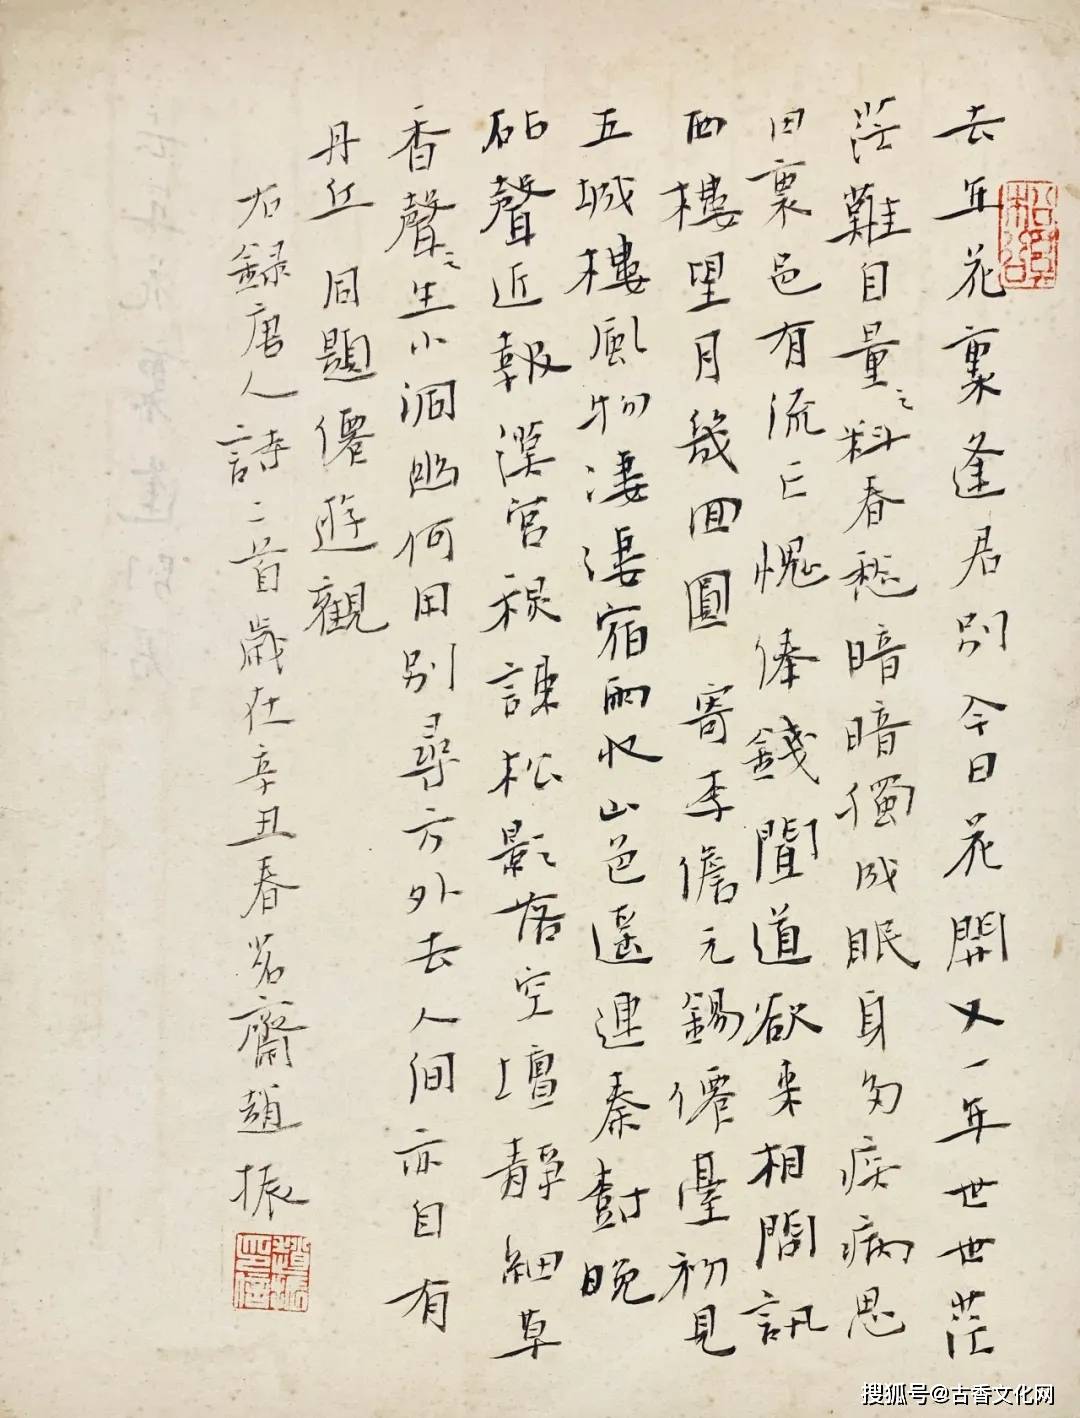 去年花裏逢君別今日花開又一年世世茫
茫難自量料春愁暗暗獨成眠身多疾病思
田裏邑有流亡愧俸錢聞道欲來相問訊
西樓望月幾回圓 寄李儋元錫 僊臺初見
五城樓風物淒淒宿雨收山色遙連秦樹晚
砧聲近報漢宮秋疎松影落空壇靜細草
香聲生小洞幽何用別尋方外去人間亦自有
丹丘 同題僊遊觀
右錄唐人詩二首歲在辛丑春茗齋趙振
趙振印信
搜狐号@古香文化网